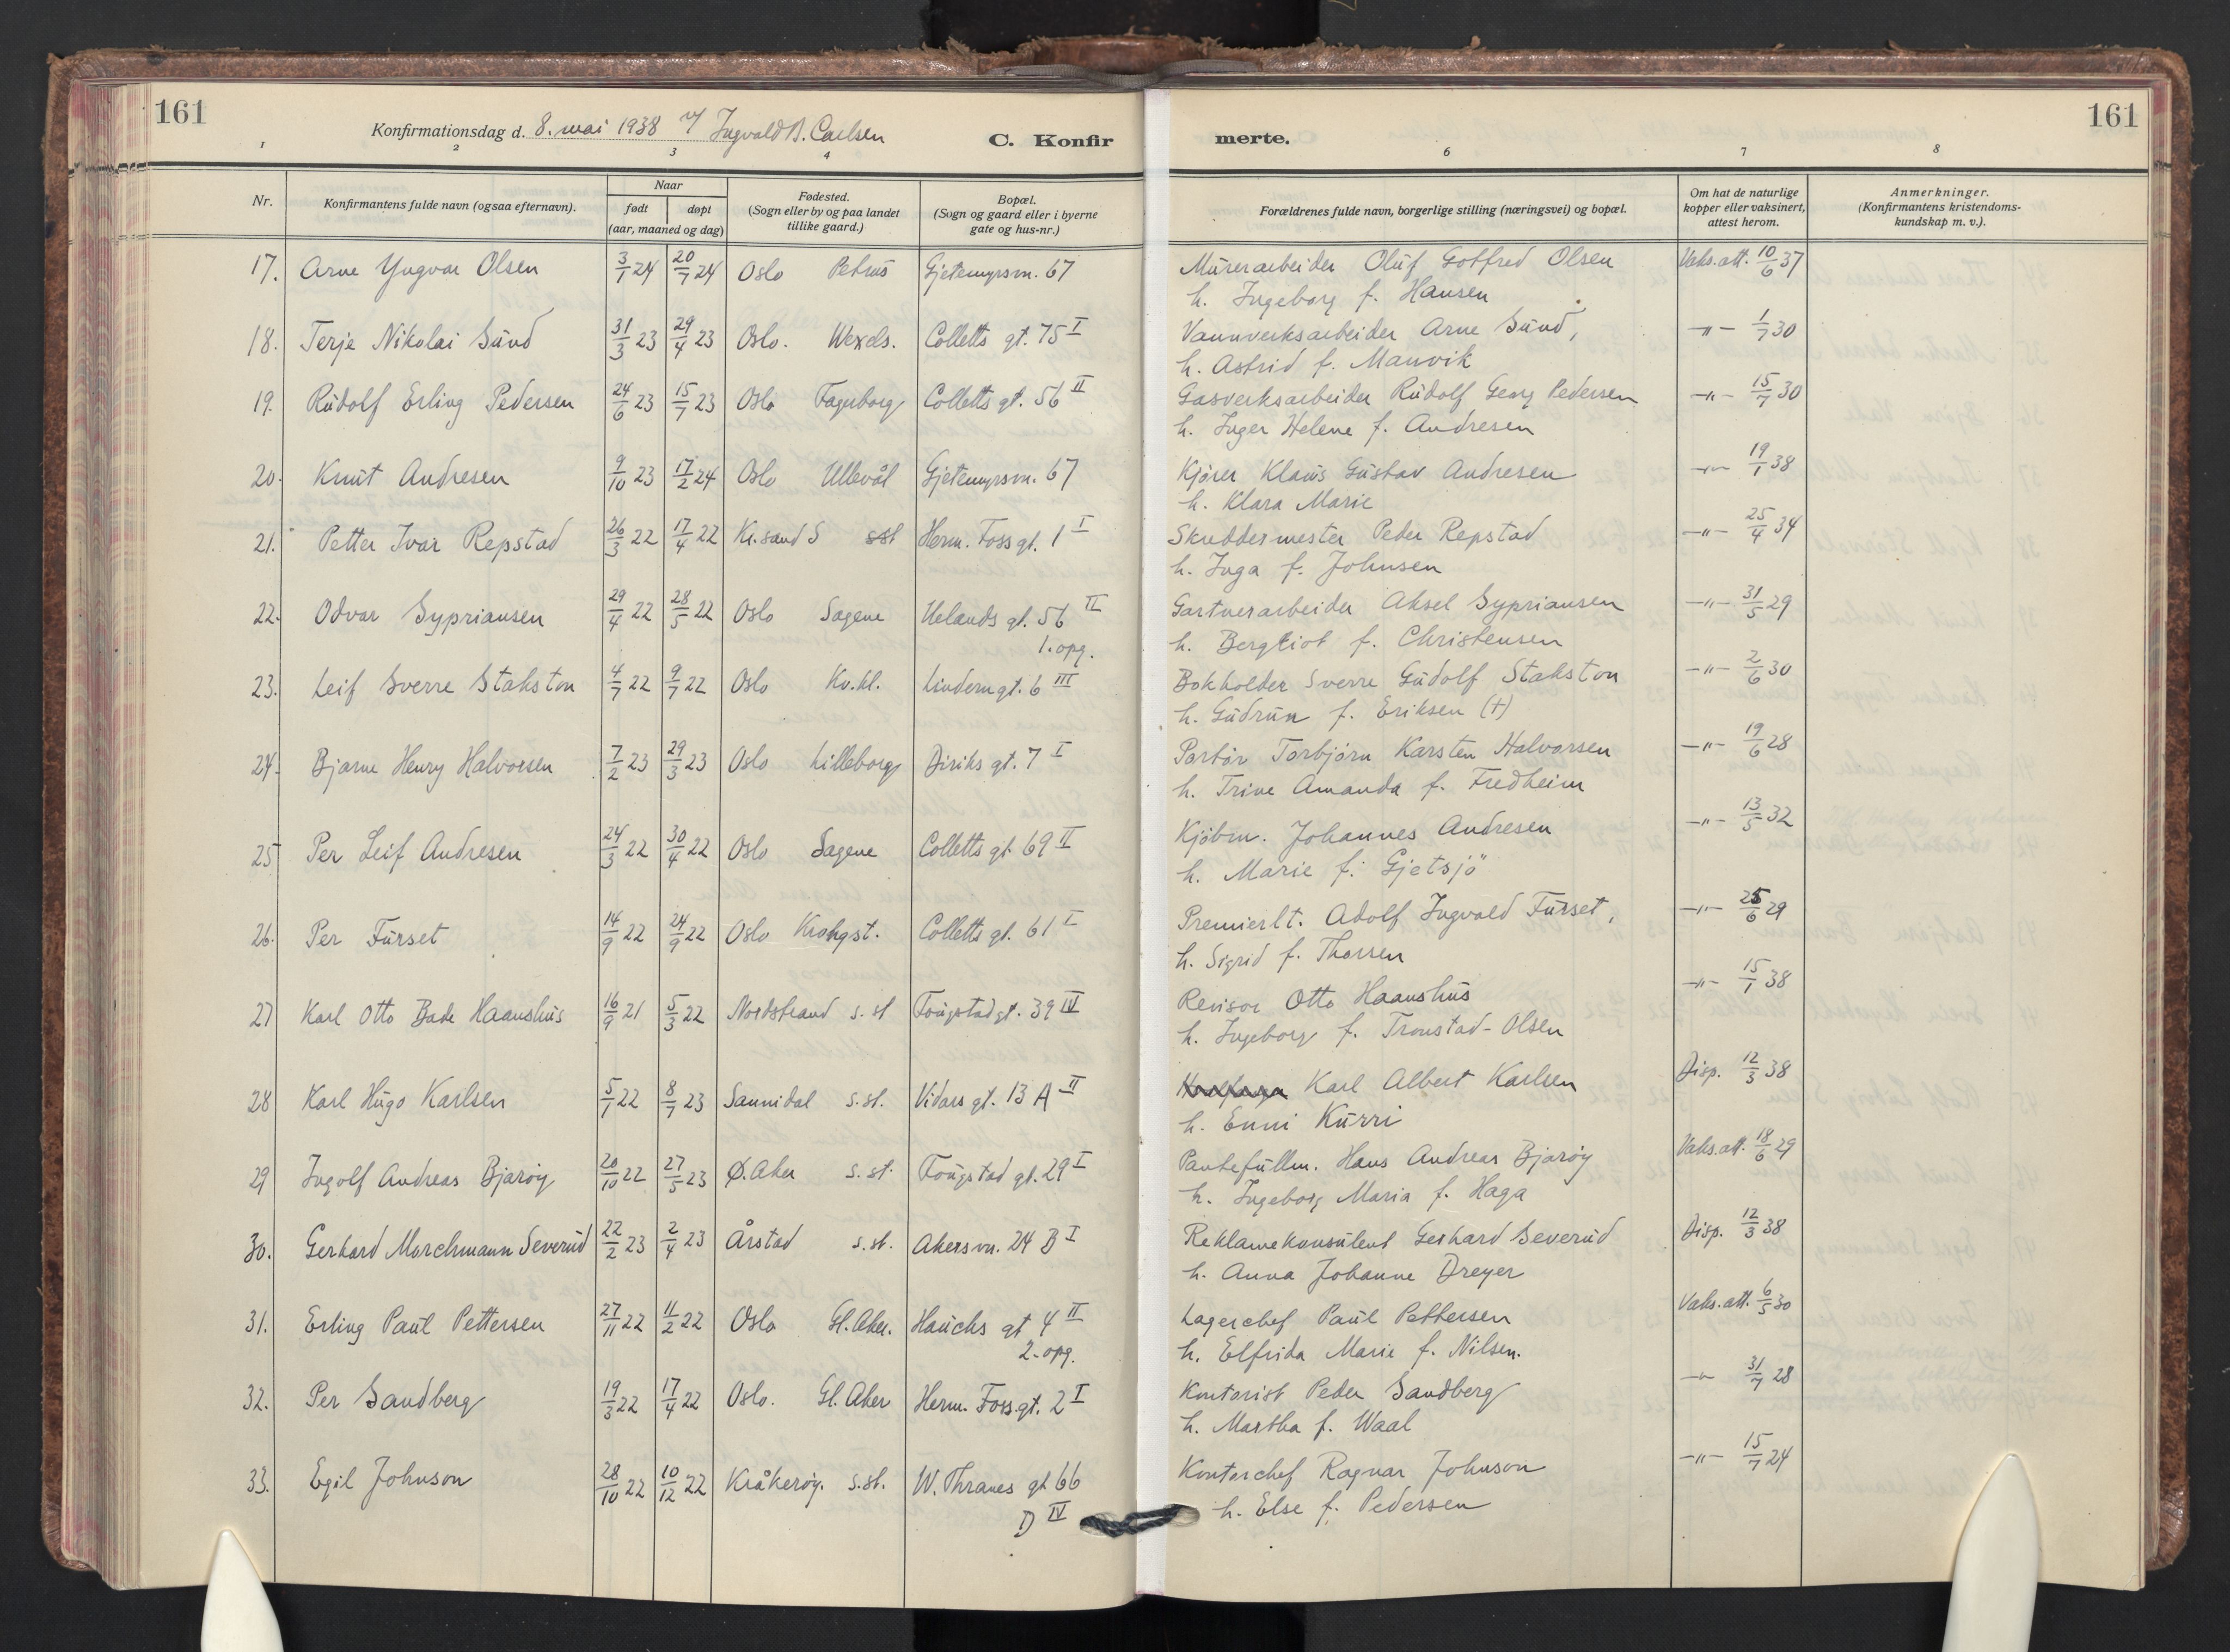 161
161
Konfirmationsdag d. 8. mai 1938 v/ Ingvald B. Carlsen
C. Konfir merte.
1 2 3 4 6 7 8
Nr.
Konfirmantens fulde navn (ogsaa efternavn).
Naar
født døpt
(aar, maaned og dag)
Fødested.
(Sogn eller by og paa landet
tillike gaard.)
Bopæl.
(Sogn og gaard eller i byerne
gate og hus-nr.)
Forældrenes fulde navn, borgerlige stilling (næringsvei) og bopæl.
Om hat de naturlige
kopper eller vaksinert,
attest herom.
Anmerkninger.
(Konfirmantens kristendoms-
kundskap m. v.).
17. Arne Yngvar Olsen 3/1 24 20/7 24 Oslo Petrus Gjetemyrsvn. 67 Murerarbeider Oluf Gotfred Olsen Vaks.att. 10/6 37
h. Ingeborg f. Hansen
18. Terje Nikolai Sund 31/3 23 29/4 23 Oslo. Wexels. Colletts gt. 75 I Vannverksarbeider Arne Sund, -"- 1/7 30
h. Astrid f. Manvik
19. Rudolf Erling Pedersen 24/6 23 15/7 23 Oslo Fagerborg Colletts gt. 56 II Gasverksarbeider Rudolf Georg Pedersen -"- 15/7 30
h. Inger Helene f. Andresen
20. Knut Andresen 9/10 23 17/2 24 Oslo Ullevål Gjetemyrsvn. 67 Kjører Klaus Gustav Andresen -"- 19/1 38
h. Klara Marie
21. Petter Ivar Repstad 26/3 22 17/4 22 Kr.sand S sst Herm. Foss gt. 1 I Skreddermester Peder Repstad -"- 25/4 34
h. Inga f. Johnsen
22. Odvar Sypriansen 29/4 22 28/5 22 Oslo Sagene Uelands gt. 56 II Gartnerarbeider Aksel Sypriansen -"- 31/5 29
1. opg. h. Bergliot f. Christensen
23. Leif Sverre Stakston 4/7 22 9/7 22 Oslo Kv.kl. Lindern gt. 6 III Bokholder Sverre Gudolf Stakston -"- 2/6 30
h. Gudrun f. Eriksen (+)
24. Bjarne Henry Halvorsen 7/2 23 29/3 23 Oslo Lilleborg Diriks gt. 7 I Portør Torbjørn Karsten Halvorsen -"- 19/6 28
h. Trine Amanda f. Fredheim
25 Per Leif Andresen 24/3 22 30/4 22 Oslo Sagene Colletts gt. 69 II Kjöbm. Johannes Andresen -"- 13/5 32
h. Marie f. Gjetsjö
26. Per Furset 14/9 22 24/9 22 Oslo Krohgst. Colletts gt. 61 I Premierlt. Adolf Ingvald Furset, -"- 25/6 29
h. Sigrid f. Thorsen
27 Karl Otto Bade Haanshus 16/9 21 5/3 22 Nordstrand s. st Fougstad gt. 39 IV Revisor Otto Haanshus -"- 15/1 38
h. Ingeborg f. Tronstad-Olsen
28 Karl Hugo Karlsen 5/1 22 8/7 23 Sannidal s.st. Vidars gt. 13 A II Karl Albert Karlsen Disp. 12/3 38
h. Enni Kurri
29 Ingolf Andreas Bjarøy 20/10 22 27/5 23 Ø.Aker s.st. Fougstad gt. 29 I Pantefullm. Hans Andreas Bjarøy Vaks.att. 18/6 29
h. Ingeborg Maria f. Haga
30. Gerhard Marchmann Severud 22/2 23 2/4 23 Årstad s.st. Akersvn. 24 B I Reklamekonsulent Gerhard Severud Disp. 12/3 38
h. Anna Johanne Dreyer
31. Erling Paul Pettersen 27/11 22 11/2 22 Oslo Gl. Aker. Hauchs gt 4 II Lagerchef Paul Pettersen Vaks.att. 6/5 30
2. opg. h. Elfrida Marie f. Nilsen.
32. Per Sandberg 19/3 22 17/4 22 Oslo. Gl. Aker Herm. Foss gt. 2 I Kontorist Peder Sandberg -"- 31/7 28
h. Martha f. Waal
33. Egil Johnson 28/10 22 10/12 22 Kråkerøy. s.st. W. Thranes gt 66 Kontorchef Ragnar Johnson -"- 15/7 24
D IV h. Else f. Pedersen